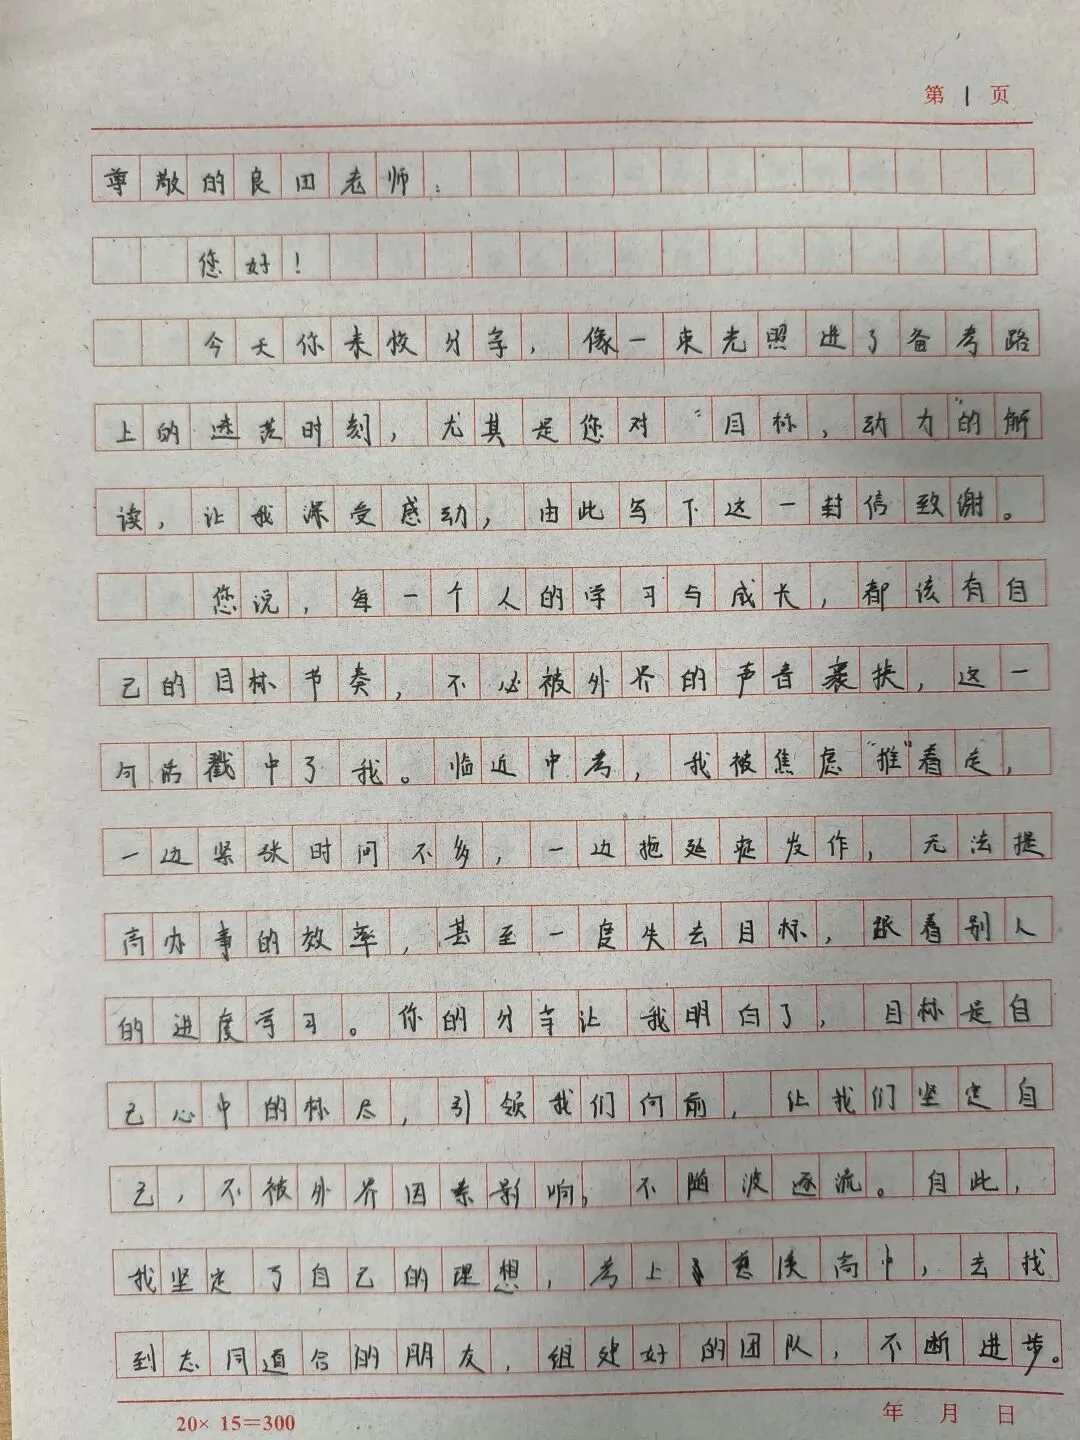 第 1 页
尊敬的良田老师：
您好！
今天你来校分享，像一束光照进了备考路
上的迷茫时刻，尤其是您对“目标，动力”的解
读，让我深受感动，由此写下这一封信致谢。
您说，每一个人的学习与成长，都该有自
己的目标节奏，不必被外界的声音裹挟，这一
句话戳中了我。临近中考，我被焦虑“推”着走，
一边紧张时间不多，一边拖延症发作，无法提
高办事的效率，甚至一度失去目标，跟着别人
的进度学习。你的分享让我明白了，目标是自
己心中的标尺，引领我们向前，让我们坚定自
己，不被外界因素影响，不随波逐流。自此，
我坚定了自己的理想，考上高中，去找
到志同道合的朋友，组建好的团队，不断进步。
20×15=300
年 月 日